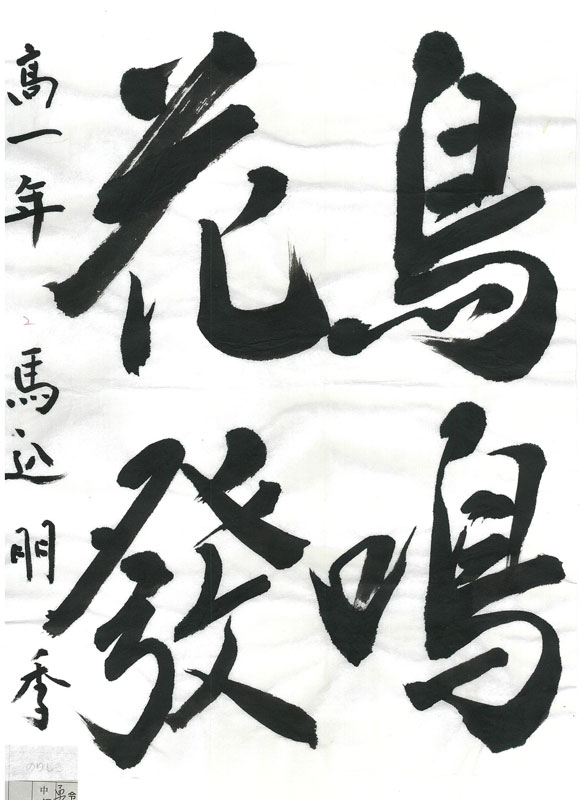 鳥鳴
花發
高一年 馬込 明季